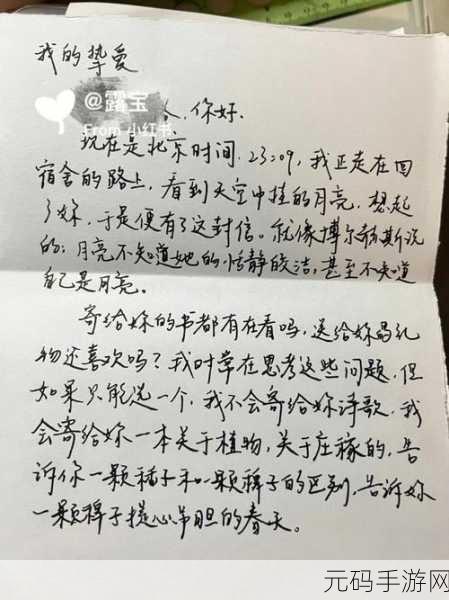 我的挚爱
@露宝
From 小红书
人,你好.
现在是北京时间.23:09,我正走在回
宿舍的路上,看到天空中挂的月亮,想起
了妳,于是便有了这封信。就像博尔赫斯说
的:月亮不知道她的恬静皎洁,甚至不知道
自己是月亮。
寄给妳的书都有在看吗,送给妳的礼
物还喜欢吗?我时常在思考这些问题,但
如果只能选一个,我不会寄给妳诗歌.我
会寄给妳一本关于植物,关于庄稼的,告
诉你一颗稻子和一颗稗子的区别,告诉妳
一颗稗子提心吊胆的春天。
元码手游网